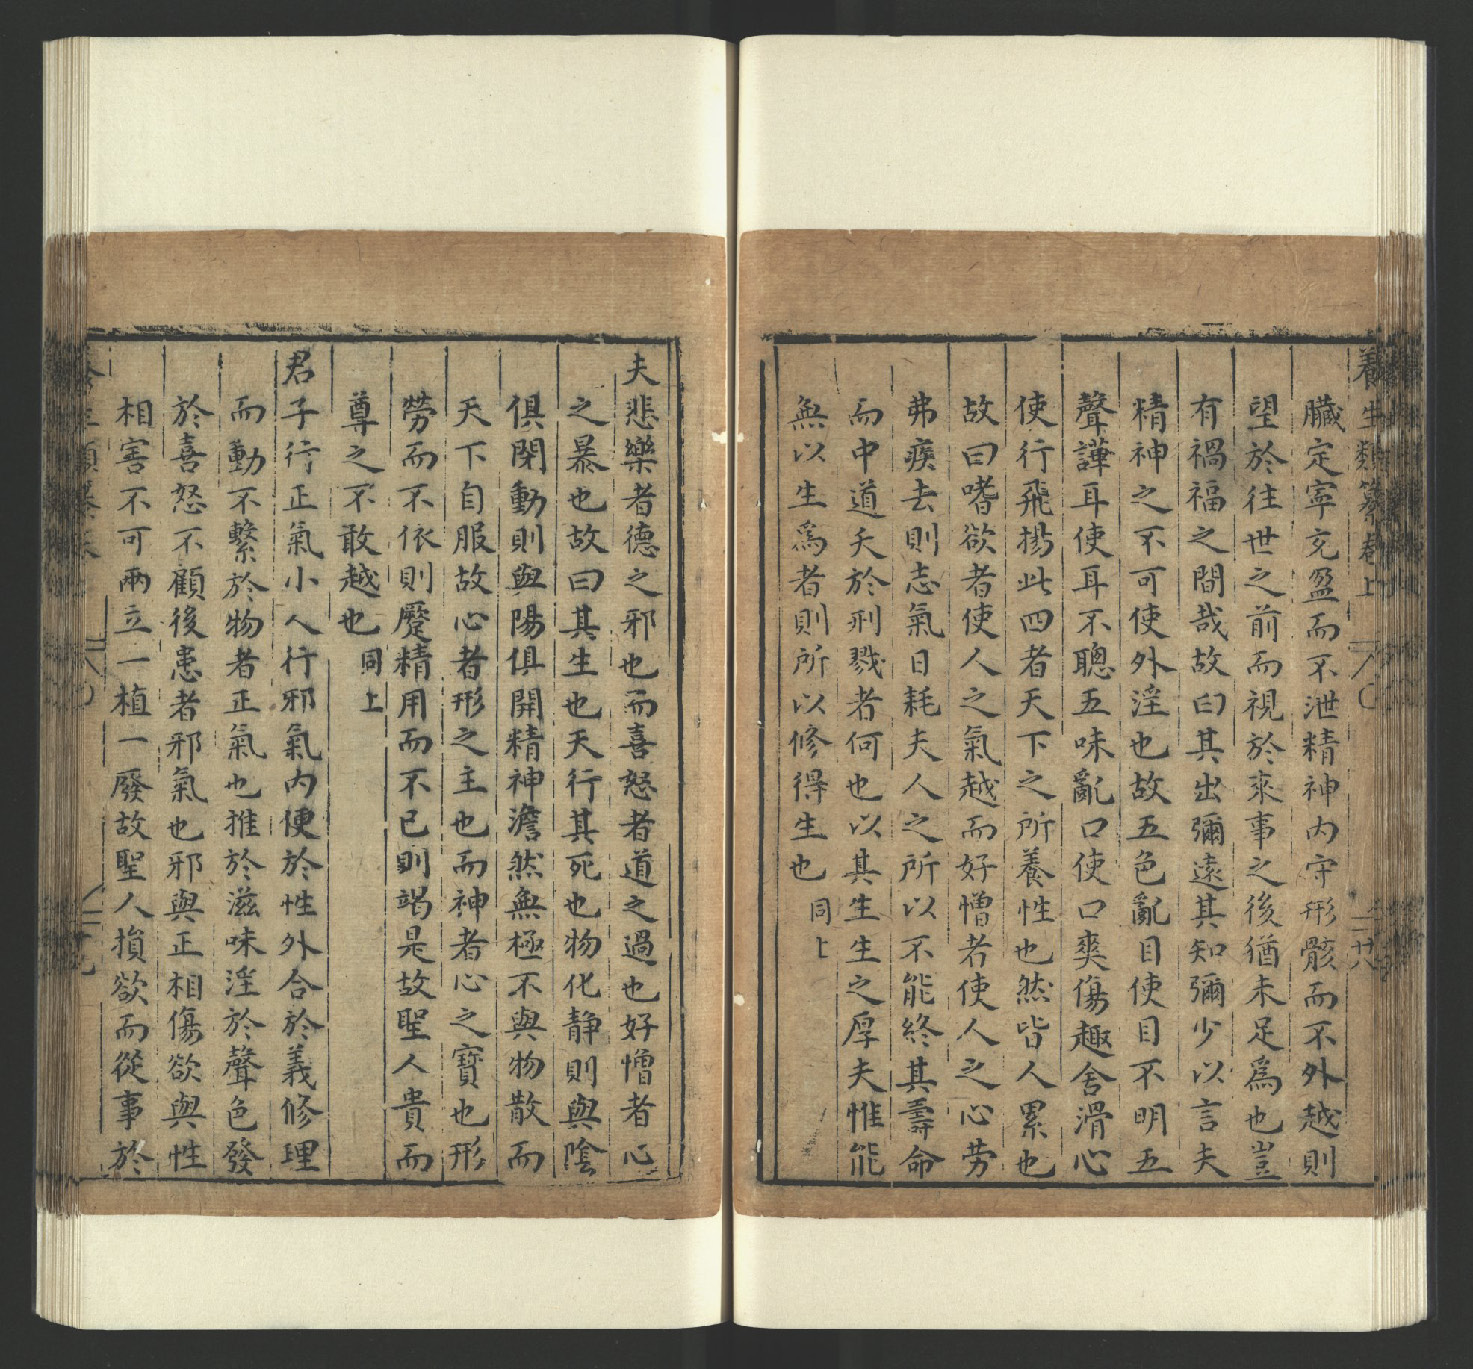 養生類纂卷上
臟定寧充盈而不泄精神内守形骸而不外越則
望於往世之前而視於來事之後猶未足為也豈
有禍福之間哉故曰其出彌遠其知彌少以言夫
精神之不可使外淫也故五色亂目使目不明五
聲譁耳使耳不聰五味亂口使口爽傷趣舍滑心
使行飛揚此四者天下之所養性也然皆人累也
故曰嗜欲者使人之氣越而好憎者使人之心勞
弗疾去則志氣日耗夫人之所以不能終其壽命
而中道夭於刑戮者何也以其生生之厚夫惟能
無以生爲者則所以修得生也 同上
夫悲樂者德之邪也而喜怒者道之過也好憎者心
之暴也故曰其生也天行其死也物化静則與陰
俱閉動則與陽俱開精神澹然無極不與物散而
天下自服故心者形之主也而神者心之寳也形
勞而不休則蹷精用而不已則竭是故聖人貴而
尊之不敢越也 同上
君子行正氣小人行邪氣内便於性外合於義修理
而動不繫於物者正氣也推於滋味淫於聲色發
於喜怒不顧後患者邪氣也邪與正相傷欲與性
相害不可兩立一植一廢故聖人損欲而從事於